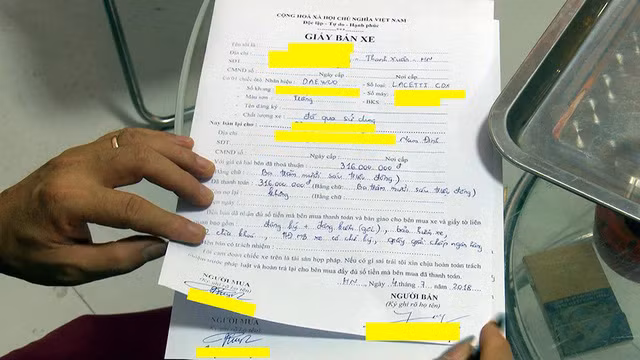 CỘNG HOÀ XÃ HỘI CHỦ NGHĨA VIỆT NAM
Độc lập - Tự do - Hạnh phúc
GIẤY BÁN XE
Tên tôi là
Địa chỉ : - Thanh Xuân - HN
SĐT
CMND số Ngày cấp Nơi cấp
Có chiếc Nhãn hiệu : DAEWOO - Số loại : LACETTI CDX
- Số khung - Số máy:
- Màu sơn : Trắng - BKS:
- Tên đăng ký
- Chất lượng xe : đã qua sử dụng
Nay bán lại cho :
Địa chỉ Nam Định
SĐT
CMND số: Ngày cấp : Nơi cấp
Với giá cả hai bên đã thoả thuận : 316.000.000đ
(Bằng chữ : Ba trăm mười sáu triệu đồng)
Đã thanh toán : 316.000.000đ (Bằng chữ : Ba trăm mười sáu triệu đồng)
nợ lại Không
Bên bán đã nhận đủ số tiền mà bên mua thanh toán và bàn giao cho bên mua xe và giấy tờ liên
quan bao gồm : đăng ký + đăng kiểm (gốc), bảo hiểm xe,
2 chìa khoá
Bên bán có trách nhiệm :
Tôi cam đoan chiếc xe trên là tài sản hợp pháp. Nếu có gì sai trái tôi xin chịu hoàn toàn trách
nhiệm trước pháp luật và hoàn trả lại cho bên mua đầy đủ số tiền mà bên mua đã thanh toán.
HN , Ngày 4 tháng 7 năm 2018
NGƯỜI MUA NGƯỜI BÁN
(Ký ghi rõ họ tên) (Ký ghi rõ họ tên)
NGƯỜI MUA
(Ký ghi rõ họ tên)